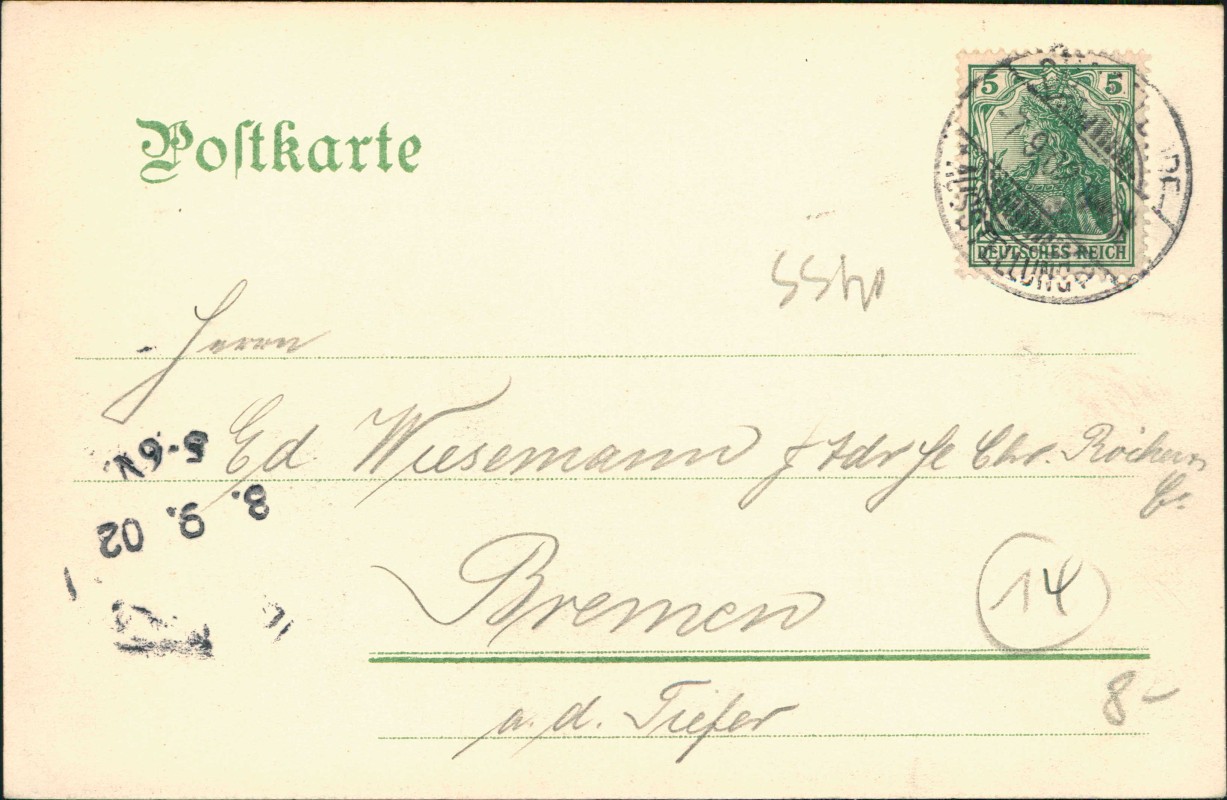 Postkarte
5 5
DEUTSCHES REICH
AUSSTELLUNG
Herrn
Ed Wiesemann
Chr.
Bremen
a. d. Tiefer
5-6V.
8. 9. 02
14
8-